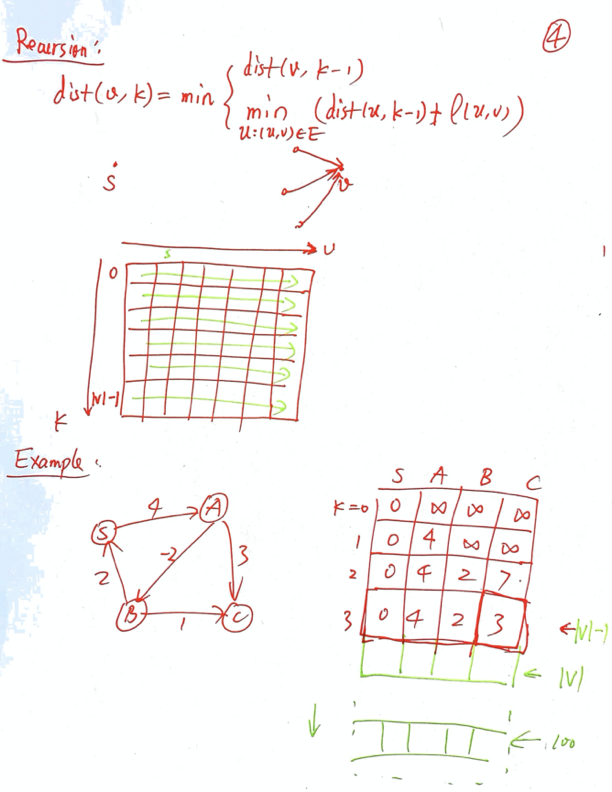 ④
Recursion:
dist(v, k) = min { dist(v, k-1)
min (dist(u, k-1) + l(u,v))
u:(u,v)∈E
S
v
S
v
0
|V|-1
k
Example:
S A B C
k=0 0 ∞ ∞ ∞
1 0 4 ∞ ∞
2 0 4 2 7.
3 0 4 2 3 ←|V|-1
← |V|
↓ ← 100
S 4 A
-2 3
2
B 1 C